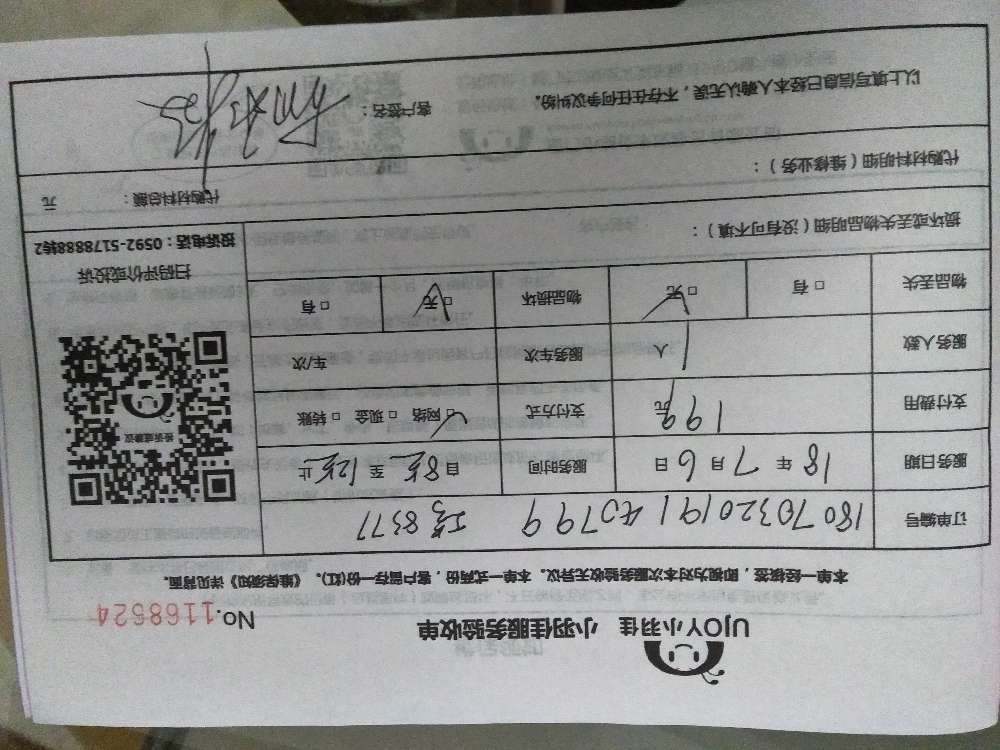 UJOY小羽佳 小羽佳服务验收单
No.1168624
本单一经核签，即视为对本次服务验收无异议。本单一式两份，客户留存一份(红)。《维保须知》详见背面。
订单编号 180703201914079 9 工号 8377
服务日期 18 年 7 月 6 日 服务时间 自 8点 至 12点 止
支付费用 199 元 支付方式 □ 网络 □ 现金 □ 转账
服务人数 1 人 服务车次 车/次
物品丢失 □ 有 □ 无 物品损坏 □ 无 □ 有
投诉或建议
扫码评价或投诉
投诉电话：0592-5178888转2
损坏或丢失物品明细（没有可不填）：
代购材料明细（维修业务）：
代购材料总额： 元
以上填写信息已经本人确认无误，不存在任何争议纠纷。 客户签名：